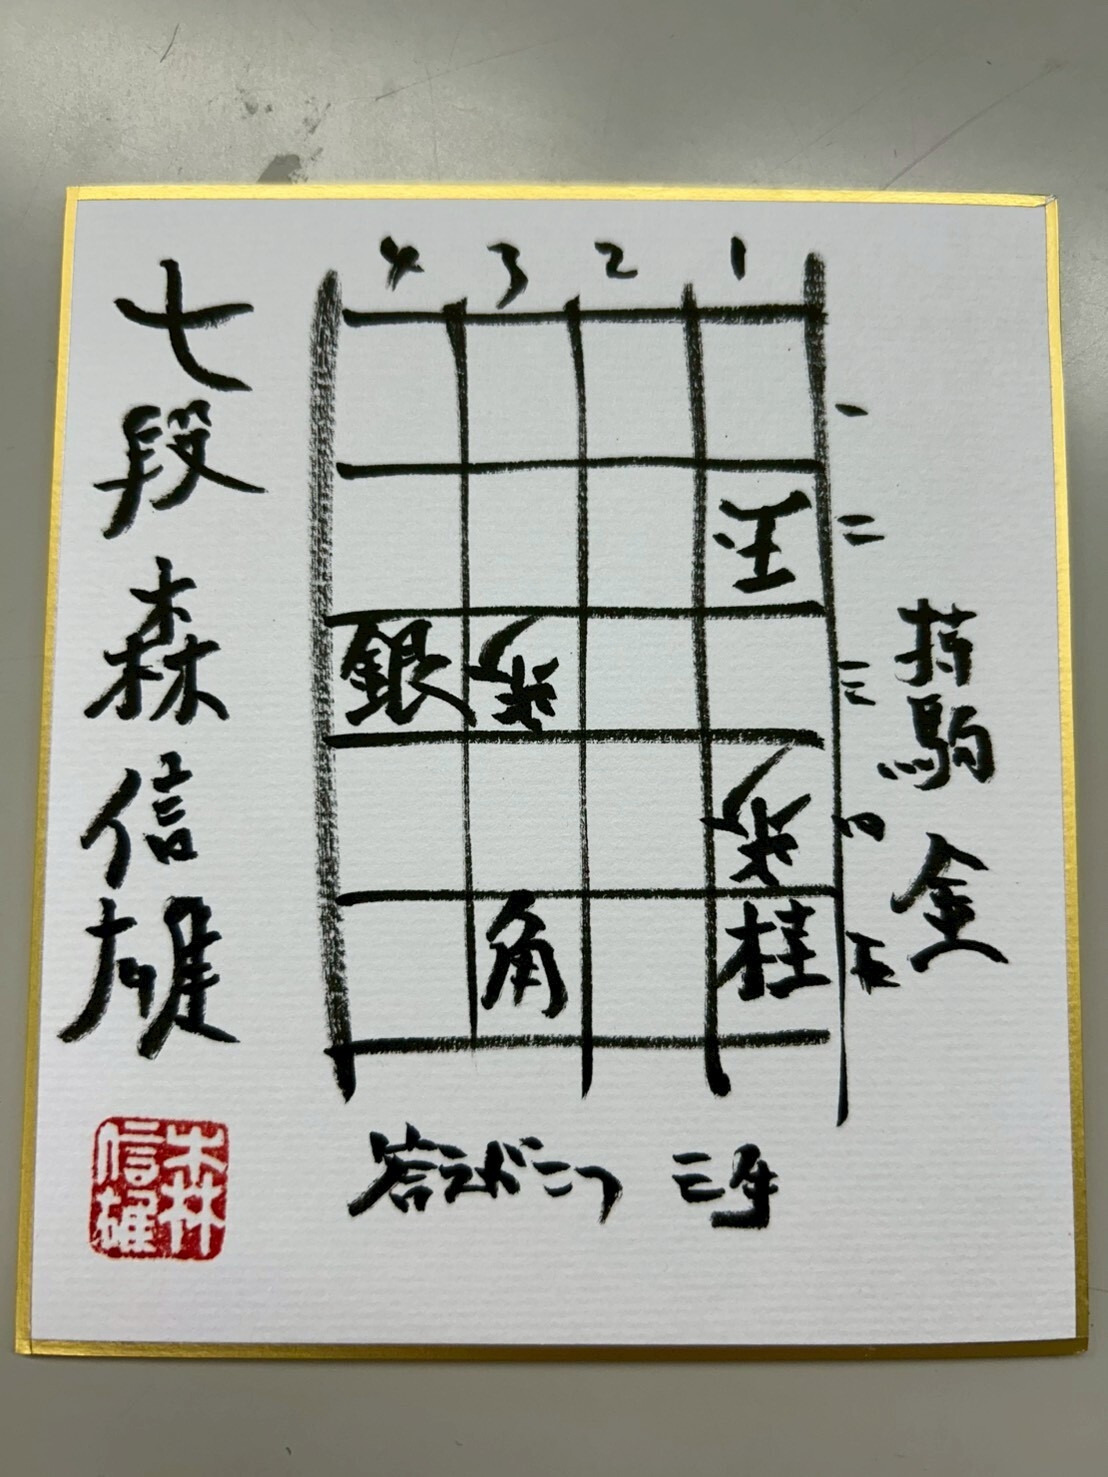 4 3 2 1
一
玉 二
銀 歩 三
歩 四
角 桂 五
持駒 金
七段 森信雄
答えが二つ 三手
森信雄